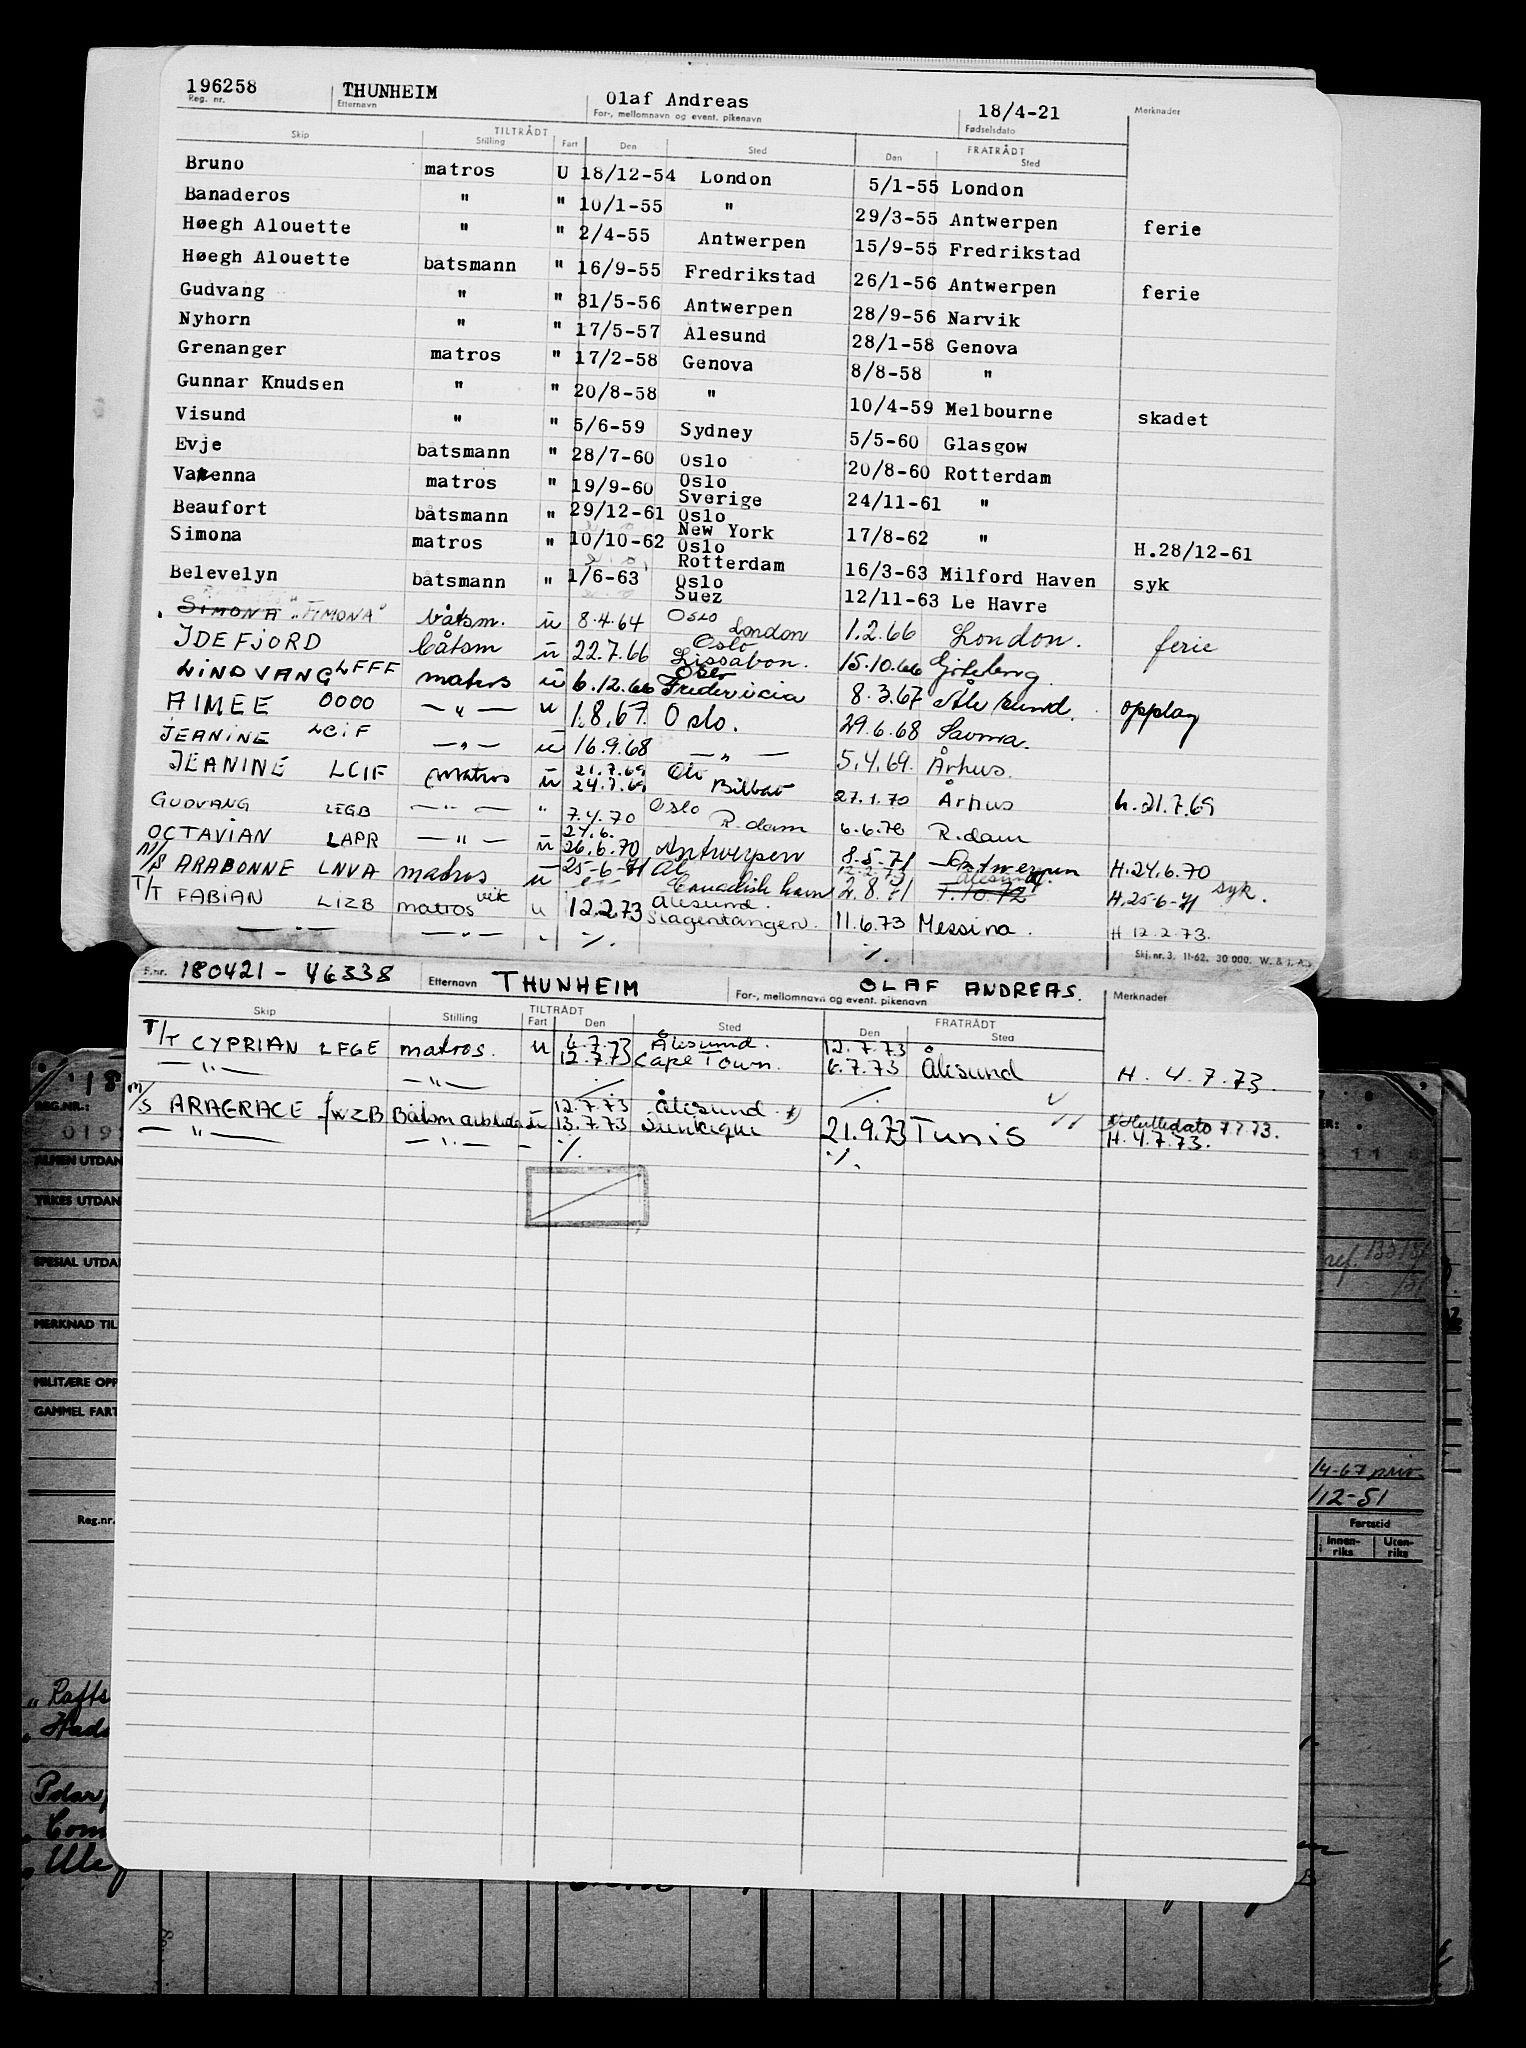 196258 THUNHEIM Olaf Andreas 18/4-21 Merknader
Reg. nr. Etternavn For-, mellomnavn og event. pikenavn Fødselsdato
TILTRÅDT FRATRÅDT
Skip Stilling Fart Den Sted Den Sted
Bruno matros U 18/12-54 London 5/1-55 London
Banaderos " " 10/1-55 " 29/3-55 Antwerpen ferie
Høegh Alouette " " 2/4-55 Antwerpen 15/9-55 Fredrikstad
Høegh Alouette båtsmann " 16/9-55 Fredrikstad 26/1-56 Antwerpen ferie
Gudvang " " 31/5-56 Antwerpen 28/9-56 Narvik
Nyhorn " " 17/5-57 Ålesund 28/1-58 Genova
Grenanger matros " 17/2-58 Genova 8/8-58 "
Gunnar Knudsen " " 20/8-58 " 10/4-59 Melbourne skadet
Visund " " 5/6-59 Sydney 5/5-60 Glasgow
Evje båtsmann " 28/7-60 Oslo 20/8-60 Rotterdam
Varenna matros " 19/9-60 Oslo Sverige 24/11-61 "
Beaufort båtsmann " 29/12-61 Oslo New York 17/8-62 " H.28/12-61
Simona matros " 10/10-62 Oslo Rotterdam 16/3-63 Milford Haven syk
Belevelyn båtsmann " 1/6-63 Oslo Suez 12/11-63 Le Havre
SIMONA "FIMONA" båtsm. u 8.4.64 Oslo London 1.2.66 London. ferie
IDEFJORD båtsm u 22.7.66 Oslo Lissabon. 15.10.66 Göteborg.
LINDVANG LFFF matros u 6.12.66 Oslo Fredericia 8.3.67 Ålesund. opplag
AIMEE 0000 — " — u 1.8.67. Oslo. 29.6.68 Savona.
JEANINE LCIF — " — u 16.9.68 — " — 5.4.69. Århus.
JEANINE LCIF matros u 21.7.69 24.7.69 Bilbao 27.1.70 Århus h. 21.7.69
GUDVANG LEGB — " — " 7.4.70 Oslo R.dam 6.6.70 R.dam
OCTAVIAN LAPR — " — u 24.6. 26.6.70 Antwerpen 8.5.71 Antwerpen H.24.6.70
M/S ARABONNE LNVA matros u 25-6-71 Ål Canadisk havn 2.8.71 H.25-6-71 syk.
T/T FABIAN LIZB matros vik u 12.2.73 Ålesund. Slagentangen. 11.6.73 Messina. H 12.2.73.
— " — — " — - ./. ./.
Skj. nr. 3. 11-62. 30 000. W. & J. A.
F.nr. 180421 - 46338 Etternavn THUNHEIM OLAF ANDREAS. Merknader
For-, mellomnavn og event. pikenavn
TILTRÅDT FRATRÅDT
Skip Stilling Fart Den Sted Den Sted
T/T CYPRIAN LFGE matros. u 6.7.73 Ålesund. 12.7.73 Å
— " — — " — 12.7.73 Cape Town. 6.7.73 Ålesund H. 4.7.73.
M/S ARAGRACE LWZB Båtsm u 12.7.73 Ålesund *)
— " — — " — - 13.7.73 21.9.73 Tunis H. 4.7.73.
./. ./.
REG.NR.:
ALMEN UTDAN
YRKES UTDAN
SPESIAL UTDA
MERKNAD TIL
MILITÆRE OPP
GAMMEL FART
/4-67 priv.
/12-51
Reg.nr. Fartstid
Innenriks Utenriks